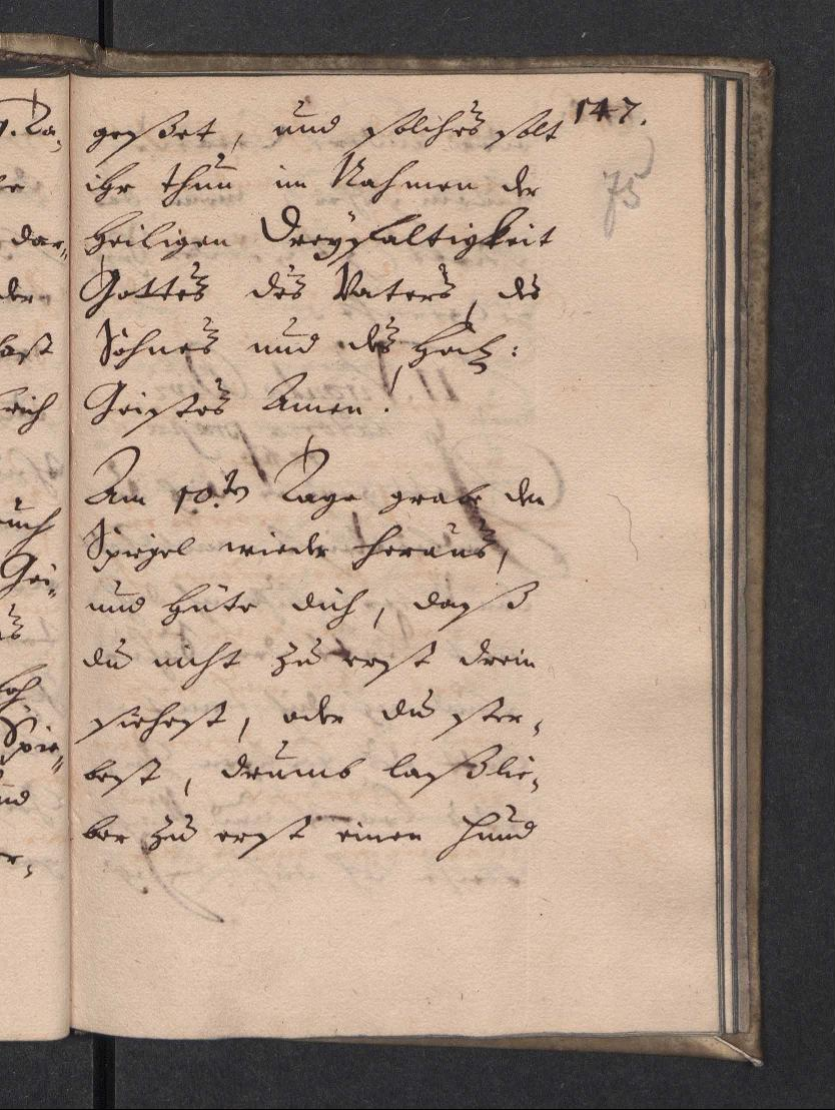 147.
75
gehset, und solches solt
ihr thun im Nahmen der
heiligen Dreyfaltigkeit
Gottes des Vaters, des
Sohnes und des Heil:
Geistes Amen.
Am 10.ten Tage grabe den
Spiegel wieder heraus,
und hüte dich, daß
du nicht zu erst drein
siehest, oder du ster,
best, drumb laß lie,
ber zu erst einen Hund
dar,,
der
auch
Gei,,
Spie,,